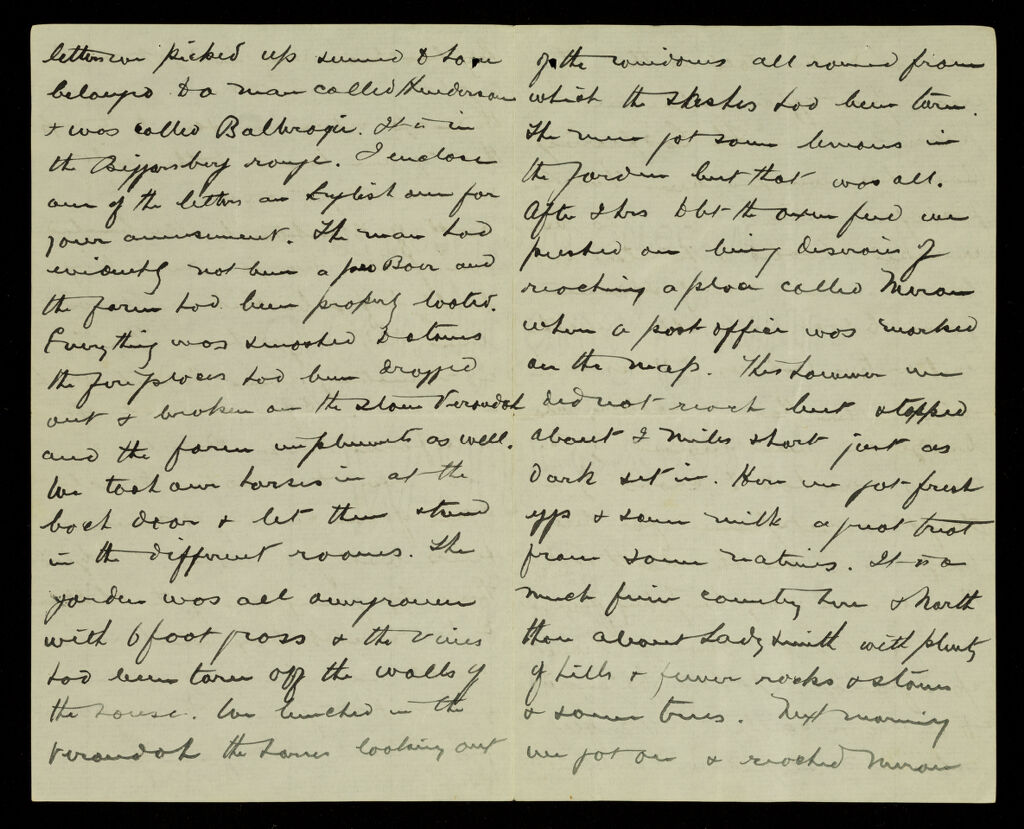 letters we picked up seemed to have
belonged to a man called Henderson
& was called Balbrogie. It is in
the Biggarsberg range. I enclose
one of the letters an English one for
your amusement. The man had
evidently not been a pro Boer and
the farm had been properly looted.
Everything was smashed to atoms
the fireplaces had been dragged
out & broken on the stone verandah
and the farm implements as well.
We took our horses in at the
back door & let them stand
in the different rooms. The
garden was all overgrown
with 6 foot grass & the vines
had been torn off the walls of
the house. We lunched in the
verandah the horses looking out
of the windows all round from
which the sashes had been torn.
The men got some lemons in
the garden but that was all.
After 2 hrs to let the oxen feed we
pushed on being desirous of
reaching a place called Meran
where a post office was marked
on the map. This however we
did not reach but stopped
about 2 miles short just as
dark set in. Here we got fresh
eggs & some milk a great treat
from some natives. It is a
much finer country here & North
than about Ladysmith with plenty
of hills & fewer rocks & stones
& some trees. Next morning
we got on & reached Meran